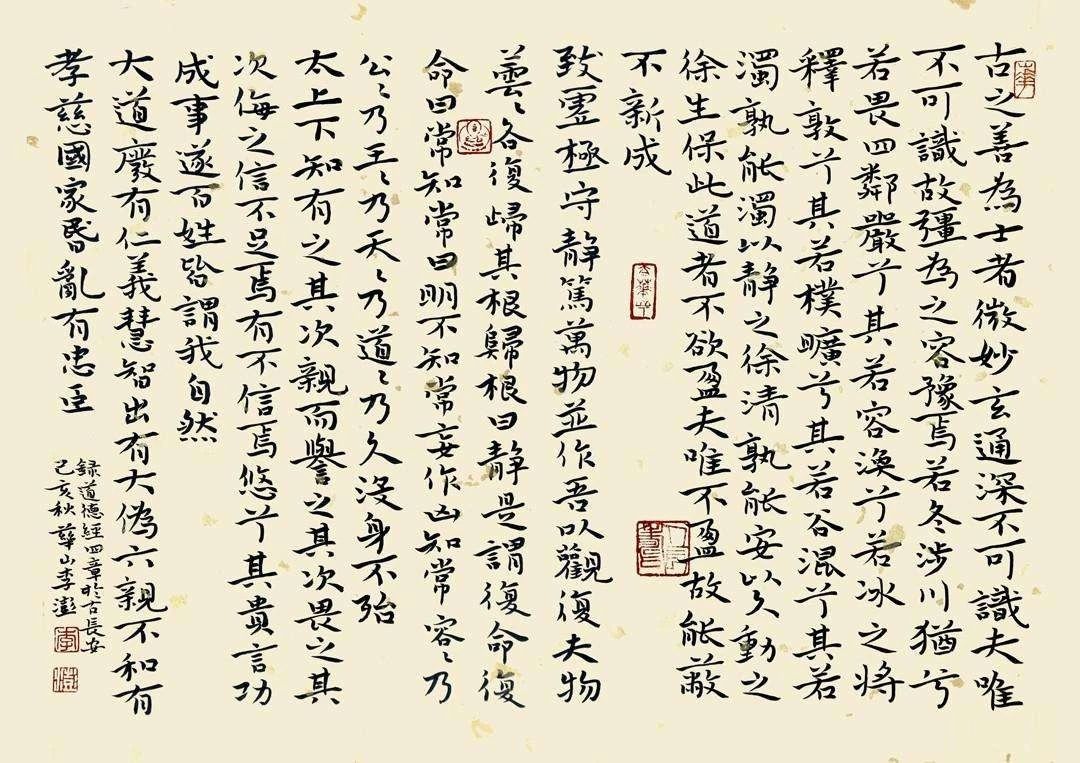 古之善為士者微妙玄通深不可識夫唯
不可識故彊為之容豫焉若冬涉川猶兮
若畏四鄰嚴兮其若容渙兮若冰之將
釋敦兮其若樸曠兮其若谷混兮其若
濁孰能濁以靜之徐清孰能安以久動之
徐生保此道者不欲盈夫唯不盈故能蔽
不新成
致虛極守靜篤萬物並作吾以觀復夫物
芸〻各復歸其根歸根曰靜是謂復命復
命曰常知常曰明不知常妄作凶知常容〻乃
公〻乃王〻乃天〻乃道〻乃久沒身不殆
太上下知有之其次親而譽之其次畏之其
次侮之信不足焉有不信焉悠兮其貴言功
成事遂百姓皆謂我自然
大道廢有仁義慧智出有大偽六親不和有
孝慈國家昏亂有忠臣
録道德經四章於古長安
己亥秋華山李澎